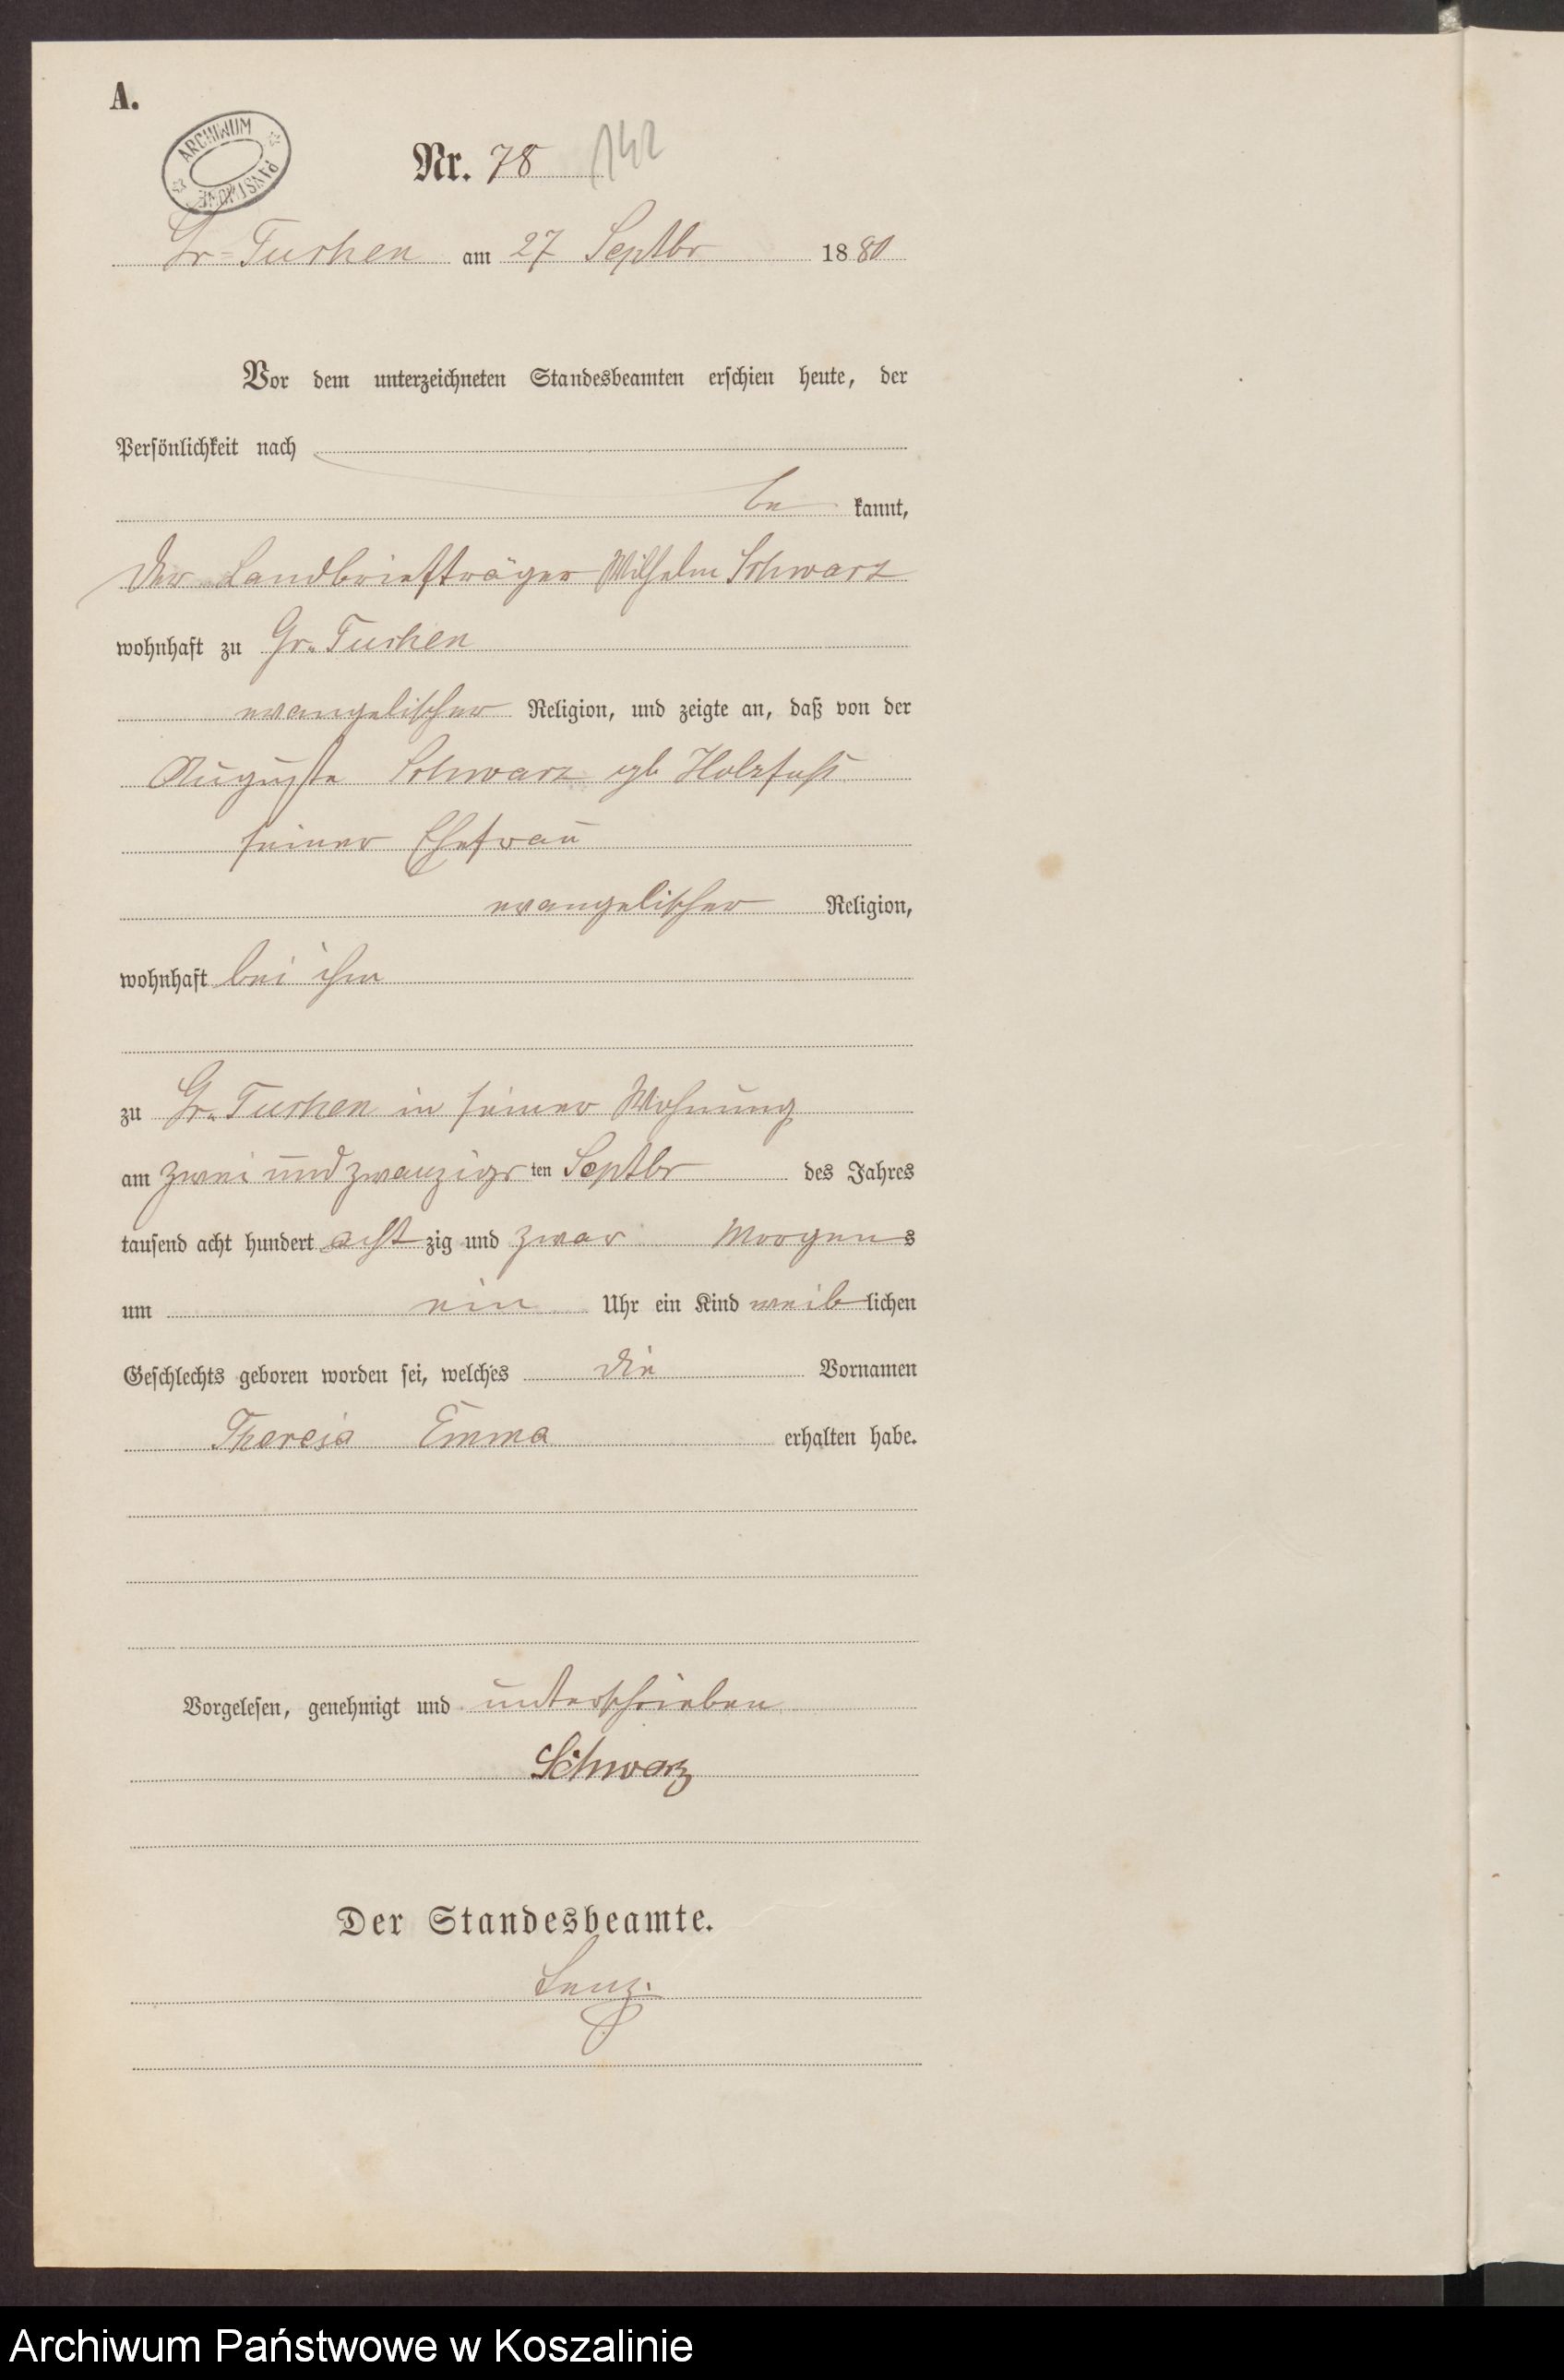 A.
ARCHIWUM PAŃSTWOWE
Nr. 78 142
Gr-Tuchen am 27 Septbr 1880
Vor dem unterzeichneten Standesbeamten erschien heute, der
Persönlichkeit nach
be kannt,
der Landbriefträger Wilhelm Schwarz
wohnhaft zu Gr. Tuchen
evangelischer Religion, und zeigte an, daß von der
Auguste Schwarz gb Holzfuß
seiner Ehefrau
evangelischer Religion,
wohnhaft bei ihm
zu Gr. Tuchen in seiner Wohnung
am zwei und zwanzigsten Septbr des Jahres
tausend acht hundert achtzig und zwar Morgens
um ein Uhr ein Kind weiblichen
Geschlechts geboren worden sei, welches die Vornamen
Theresia Emma erhalten habe.
Vorgelesen, genehmigt und unterschrieben
Schwarz
Der Standesbeamte.
Lenz.
Archiwum Państwowe w Koszalinie